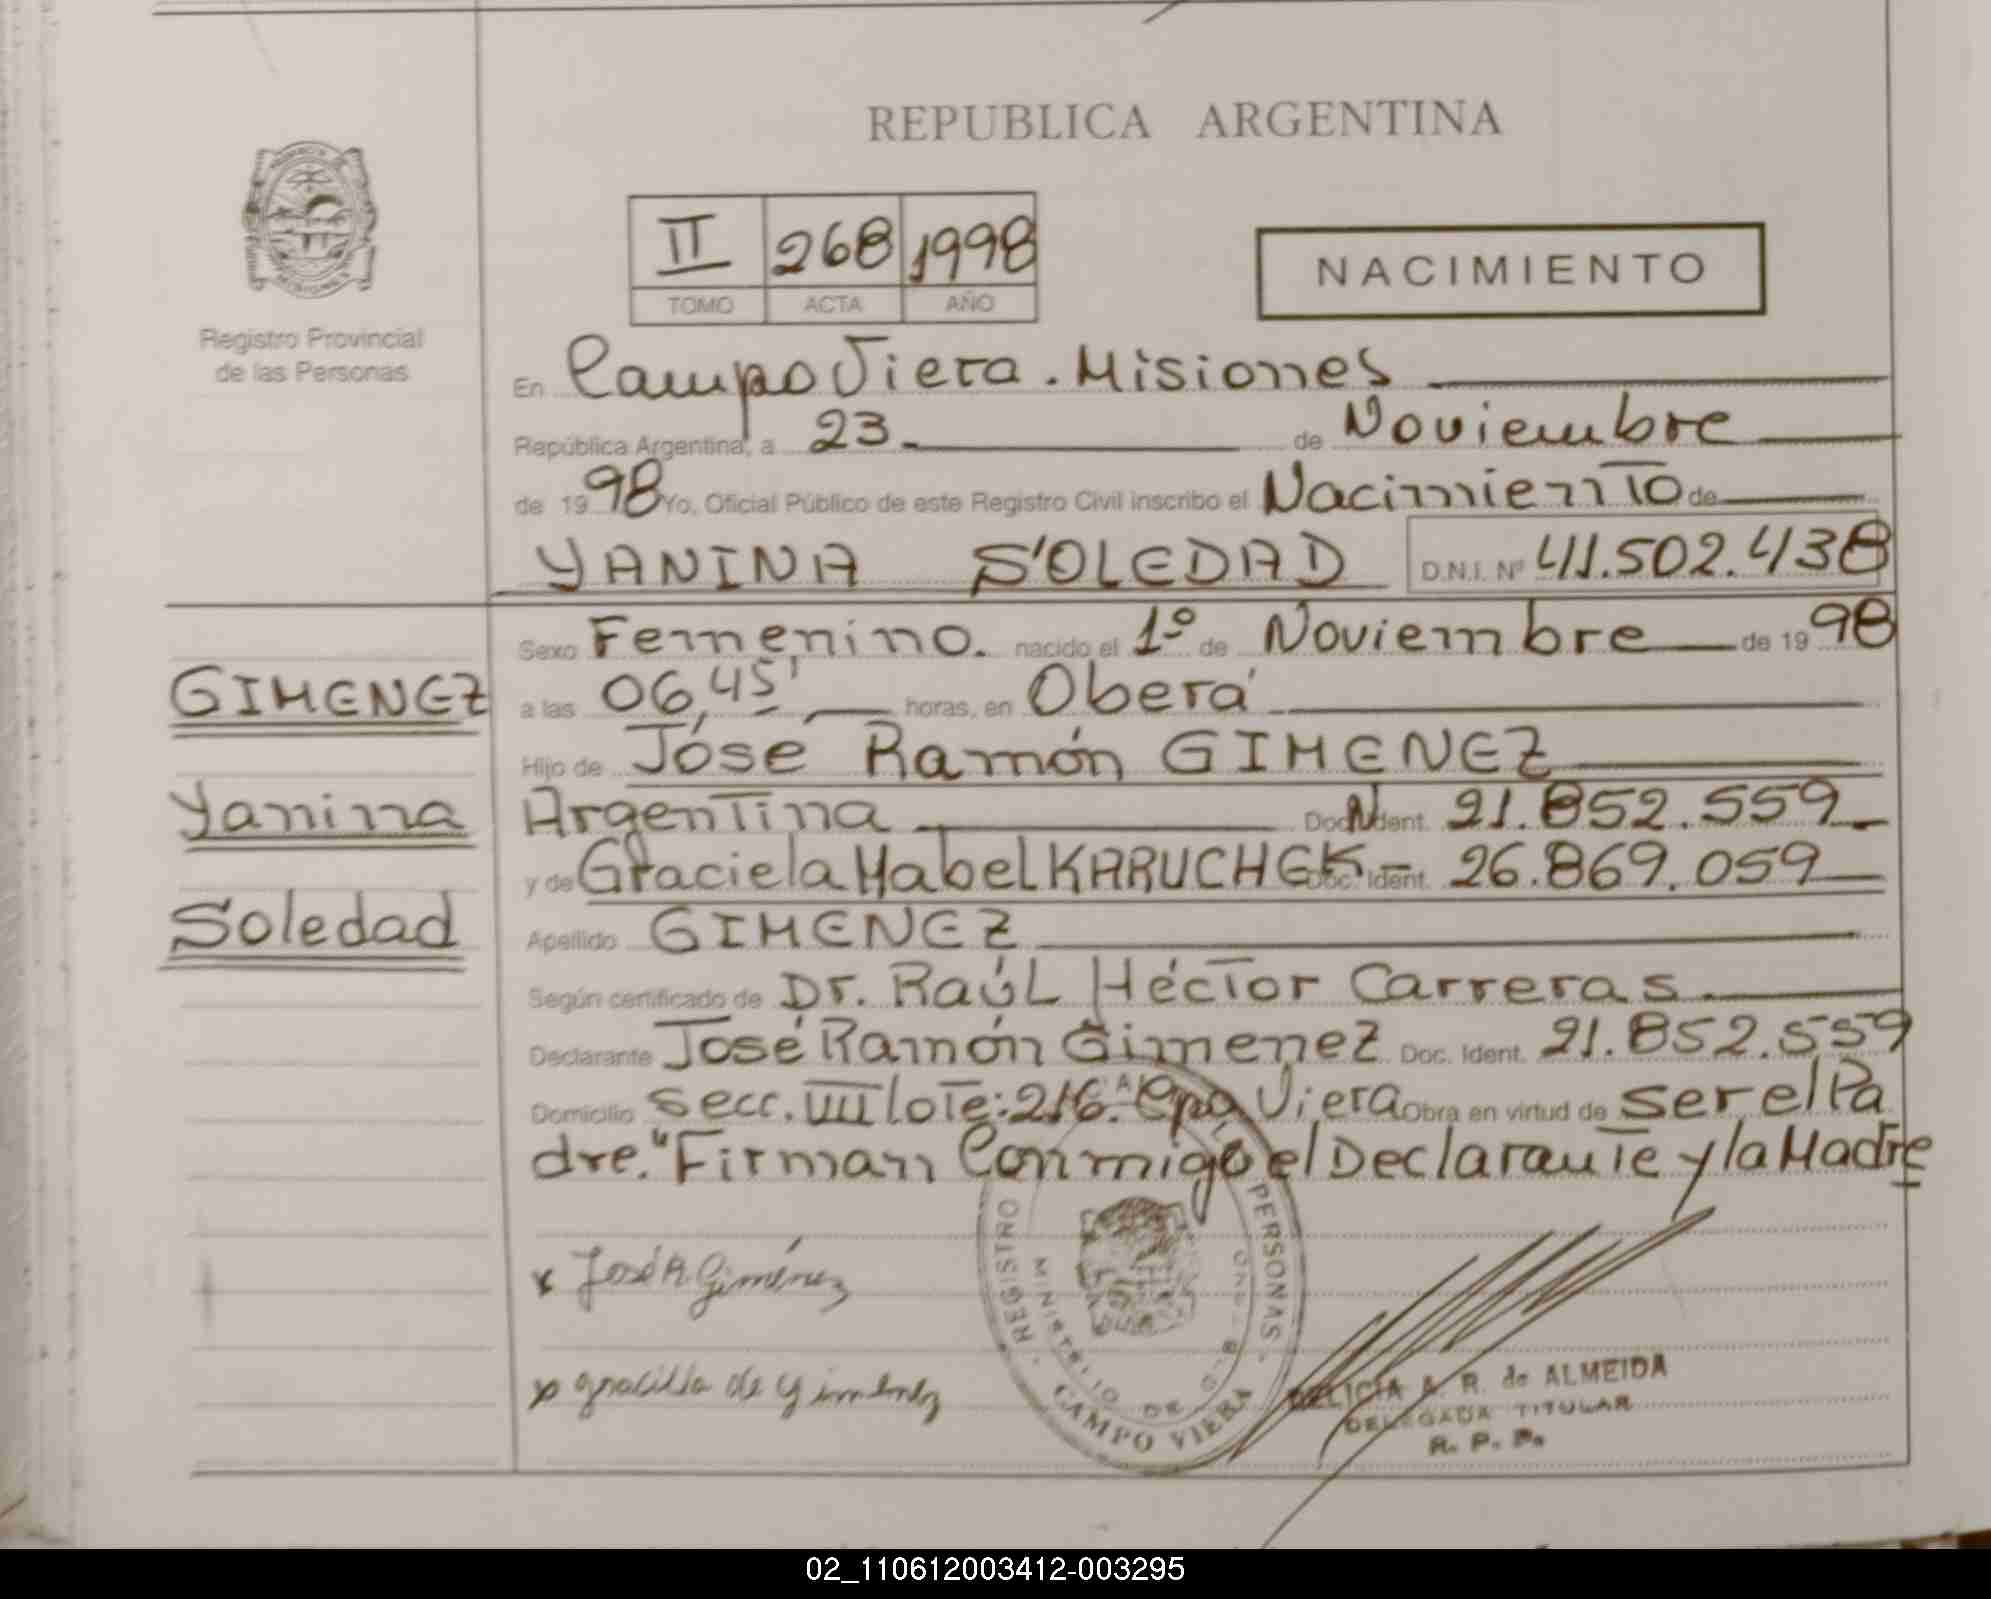 REPUBLICA ARGENTINA
II 268 1998
TOMO ACTA AÑO
NACIMIENTO
Registro Provincial
de las Personas
En Campo Viera. Misiones
República Argentina, a 23 de Noviembre
de 1998 Yo, Oficial Público de este Registro Civil inscribo el Nacimiento de
YANINA SOLEDAD D.N.I. Nº 41.502.438
Sexo Femenino. nacido el 1º de Noviembre de 1998
GIMENEZ
a las 06,45' horas, en Oberá
Hijo de José Ramón GIMENEZ
Yanina
Argentina Doc. Ident. 21.852.559
y de Graciela Mabel KARUCHEK Doc. Ident. 26.869.059
Soledad
Apellido GIMENEZ
Según certificado de Dr. Raúl Héctor Carreras
Declarante José Ramón Gimenez Doc. Ident. 21.852.559
Domicilio Secc. VIII lote: 216. A Cpo Viera Obra en virtud de ser el Pa
dre. "Firman Conmigo el Declarante y la Madre
x José R. Giménez
x graciela de gimenez
REGISTRO PERSONAS
MINISTERIO DE GOB
CAMPO VIERA
DELICIA A. R. de ALMEIDA
DELEGADA TITULAR
R. P. P.
02_110612003412-003295